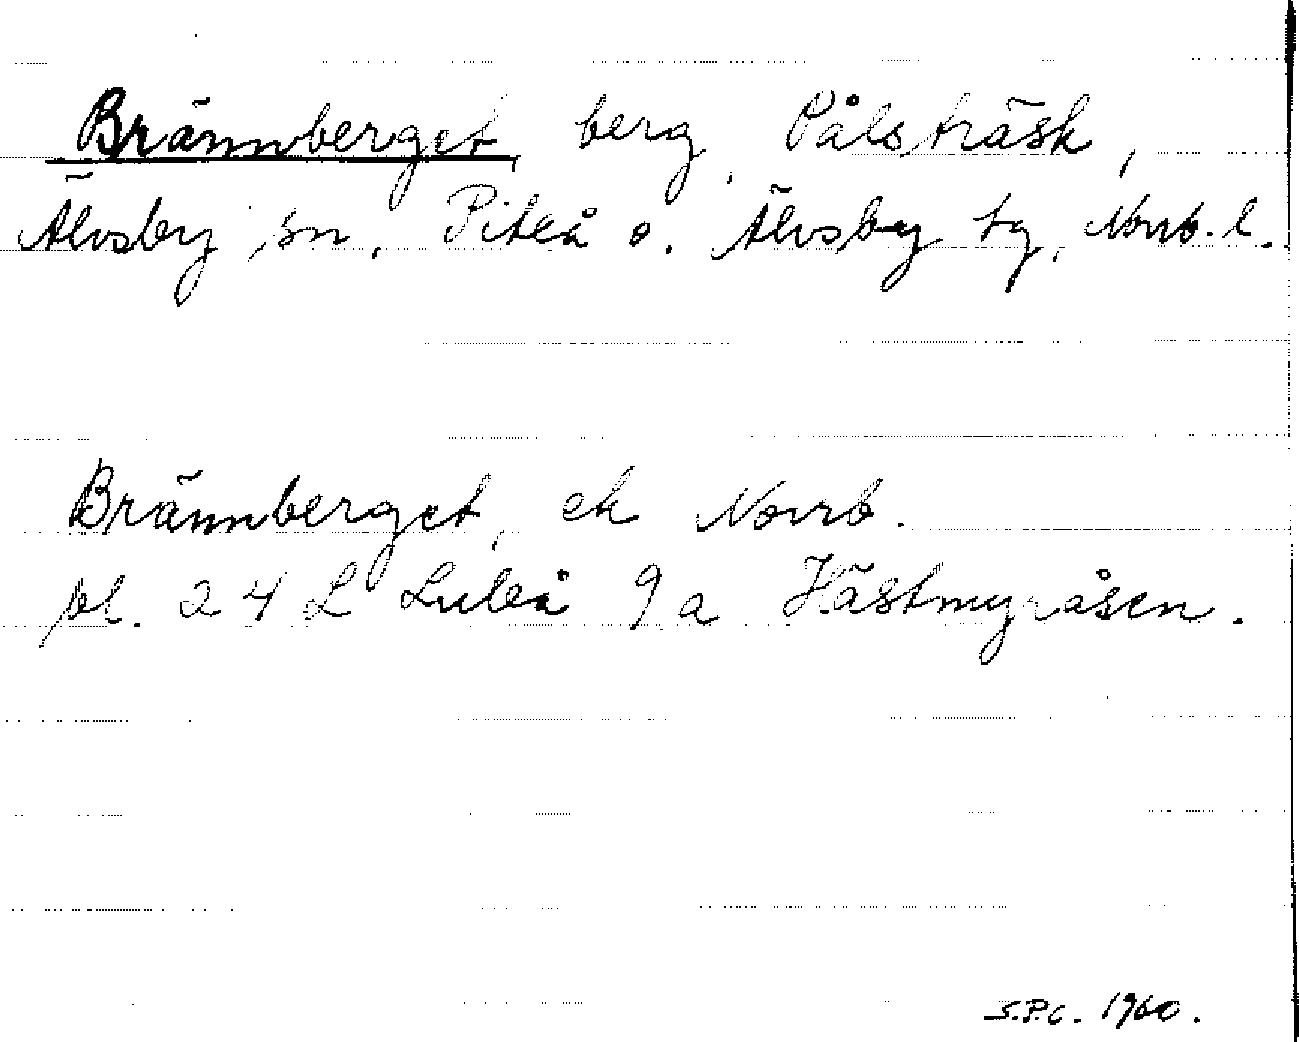 Brännberget, berg, Pålsträsk,
Älvsby sn, Piteå o. Älvsby tg, Norrb. l.
Brännberget, ek Norrb.
pl. 24 L Luleå 9 a Hästmyråsen.
S.P.C. 1960.